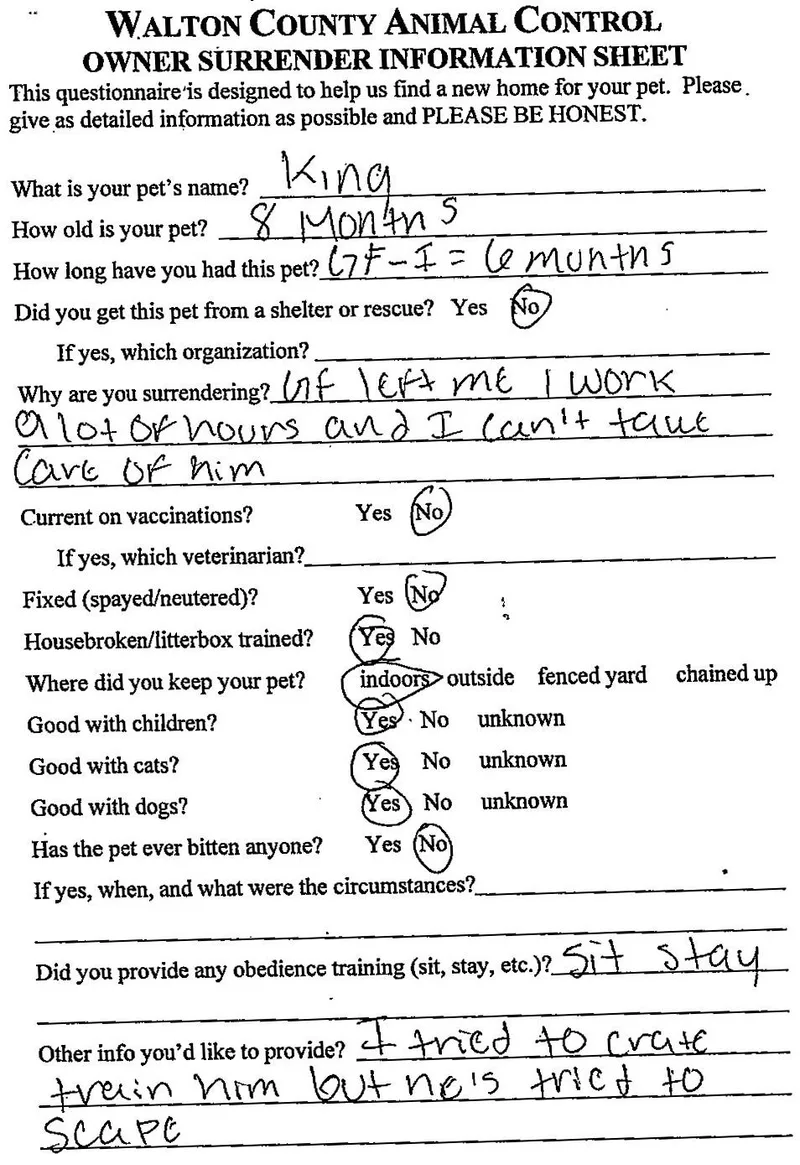 WALTON COUNTY ANIMAL CONTROL
OWNER SURRENDER INFORMATION SHEET
This questionnaire is designed to help us find a new home for your pet. Please
give as detailed information as possible and PLEASE BE HONEST.
What is your pet's name? King
How old is your pet? 8 Months
How long have you had this pet? GF - I = 6 months
Did you get this pet from a shelter or rescue? Yes No
If yes, which organization?
Why are you surrendering? GF left me I work
a lot of hours and I can't take
care of him
Current on vaccinations? Yes No
If yes, which veterinarian?
Fixed (spayed/neutered)? Yes No
Housebroken/litterbox trained? Yes No
Where did you keep your pet? indoors outside fenced yard chained up
Good with children? Yes No unknown
Good with cats? Yes No unknown
Good with dogs? Yes No unknown
Has the pet ever bitten anyone? Yes No
If yes, when, and what were the circumstances?
Did you provide any obedience training (sit, stay, etc.)? Sit stay
Other info you'd like to provide? I tried to crate
train him but he's tried to
scape